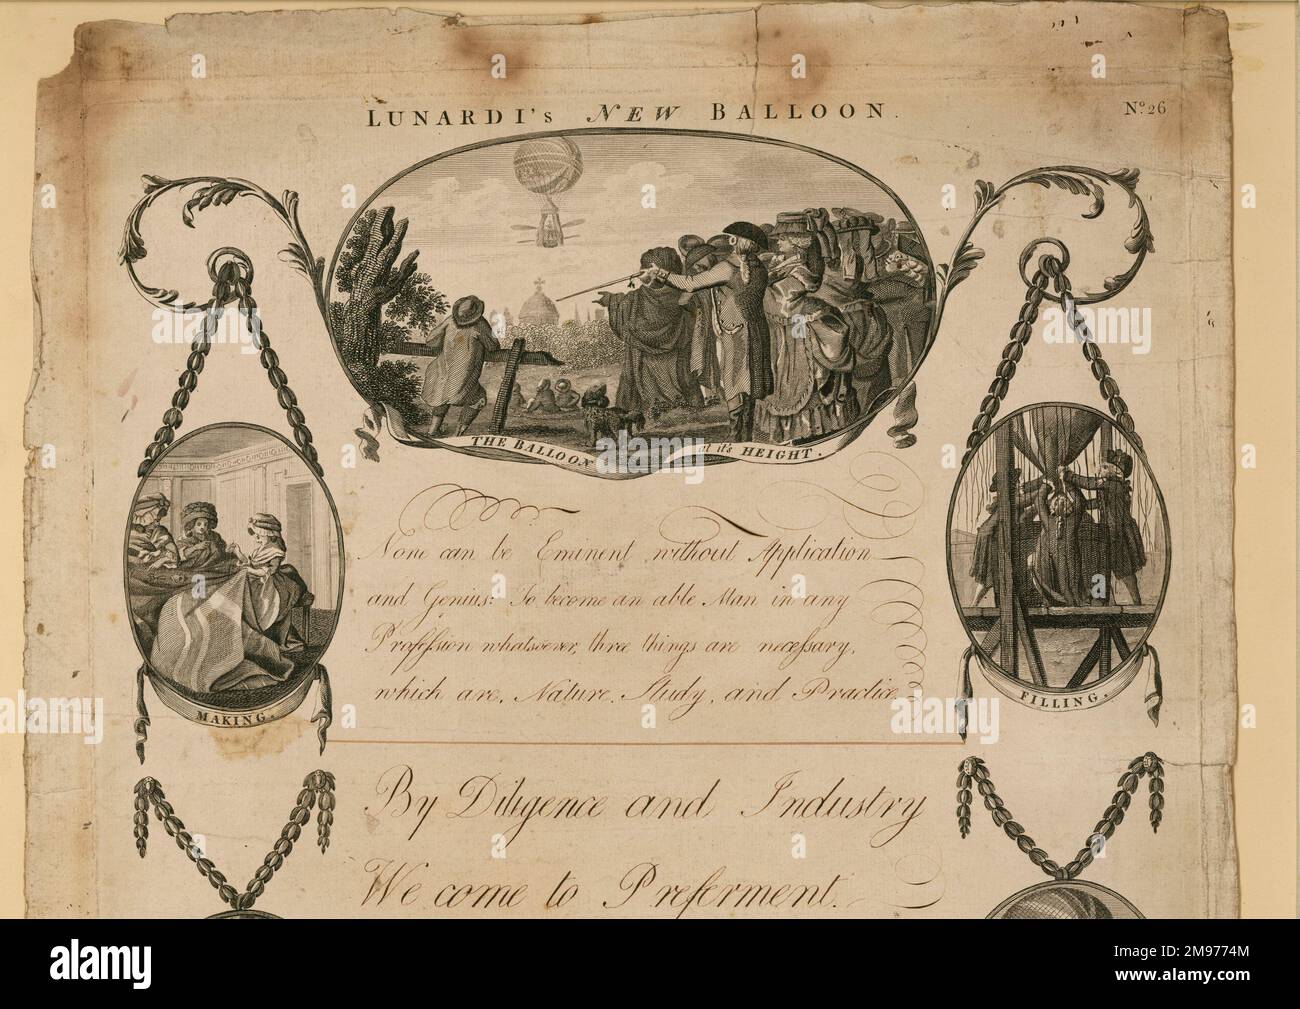 LUNARDI's NEW BALLOON.
No. 26
THE BALLOON at it's HEIGHT.
None can be Eminent without Application
and Genius: To become an able Man in any
Profession whatsoever, three things are necessary,
which are, Nature, Study, and Practice
MAKING.
FILLING.
By Diligence and Industry
We come to Preferment.
alamy
Image ID: 2M9774M
www.alamy.com